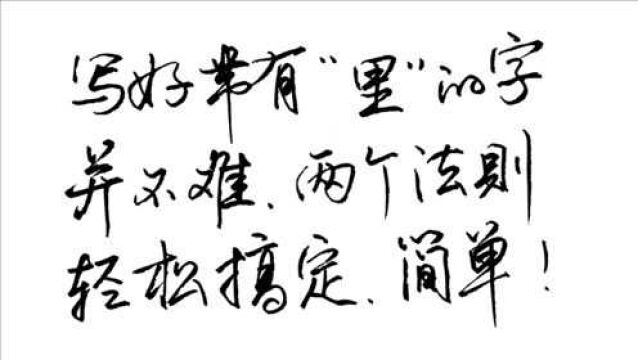 写好带有“里”的字
并不难、两个法则
轻松搞定、简单！